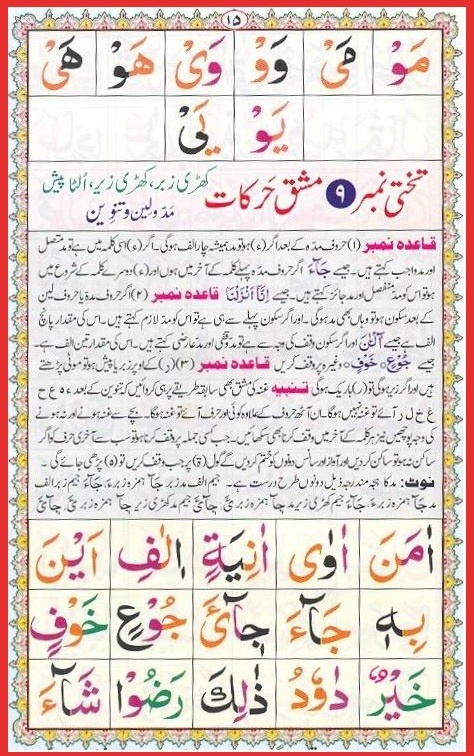 ١٥
مَوْ مَیْ وَوْ وَیْ هَوْ هَیْ
یَوْ یَیْ
تختی نمبر ۹ مشق حَرکات کھڑی زبر، کھڑی زیر، اُلٹا پیش
مَدّ و لین و تنوین
قاعدہ نمبر (۱) حروف مدّہ کے بعد اگر (ء) ہو تو مد ہمیشہ چار الف ہوگی۔ اگر (ء) اسی کلمہ میں ہے تو مد متصل
اور مد واجب کہتے ہیں۔ جیسے جَآءَ اگر حروف مدّہ پہلے کلمہ کے آخر میں ہوں اور (ء) دوسرے کلمہ کے شروع میں
ہو تو اس کو مد منفصل اور مد جائز کہتے ہیں۔ جیسے اِنَّاۤ اَنْزَلْنَا قاعدہ نمبر (۲) اگر حروف مدہ یا حروف لین
کے بعد سکون ہو تو وہاں بھی مد ہوگی۔ اور اگر سکون پہلے سے ہی ہے تو اس کو مد لازم کہتے ہیں۔ اس کی مقدار پانچ
الف ہے جیسے آٰلْئٰنَ اور اگر سکون وقف کی وجہ سے ہے تو مد وقفی اور مد عارضی کہتے ہیں۔ اس کی مقدار تین الف ہے۔
جیسے جُوْعٍ، خَوْفٍ ٥ وغیرہ پر وقف کریں قاعدہ نمبر (۳) (ر) کے اوپر زبر یا پیش ہو تو موٹی پڑھتے
ہیں اور اگر زیر ہو گی تو (ر) باریک ہوگی تنبیہ غنہ کی مشق بھی سابقہ طریقے پر ہی کروائیں کہ تنوین کے بعد ء ہ ع ح
غ خ ل ر آئے تو غنہ نہیں ہوگا۔ ان آٹھ حروف کے علاوہ کوئی اور حرف آئے تو غنہ ہوگا۔ بچے سے غنہ ہونے اور نہ ہونے
کی وجہ پوچھیں نیز ہر کلمہ کے آخر میں وقف کرنا بھی سکھائیں۔ جب کسی جملہ پر وقف کرنا ہو تو سب سے آخری حرف کو اگر
ساکن نہ ہو تو ساکن کر دیں اور آواز اور سانس دونوں کو ختم کر دیں گے گول (ۃ) پر جب وقف کریں تو (ہ) پڑھی جائے گی۔
نوٹ: مد کا ہجہ مندرجہ ذیل دونوں طرح درست ہے۔ جیم الف مد زبر جَآ ہمزہ زبر ءَ، جَآءَ جیم زبر الف
اٰمَنَ اٰوٰی اٰنِیَةٍ اٖلٰفِ اَیْنَ
بِهٖ جَآءَ جِآیْٓءَ جُوْعٍ خَوْفٍ
خَیْرٌ دَاوٗدُ ذٰلِكَ رَضُوْا شَآءَ